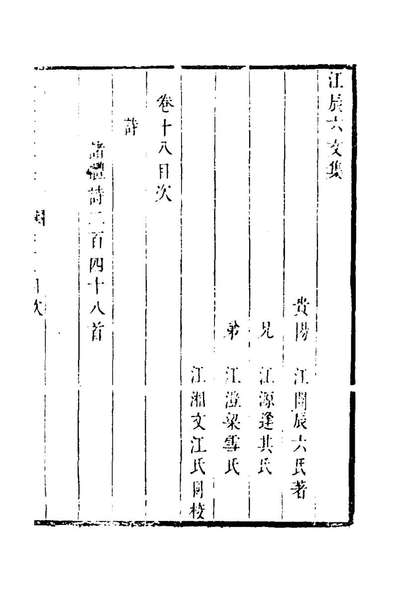 江辰六文集
貴陽 江闓辰六氏著
兄 江源逢其氏
弟 江澄梁雪氏
江湘文江氏同校
卷十八目次
詩
諸體詩二百四十八首
目次